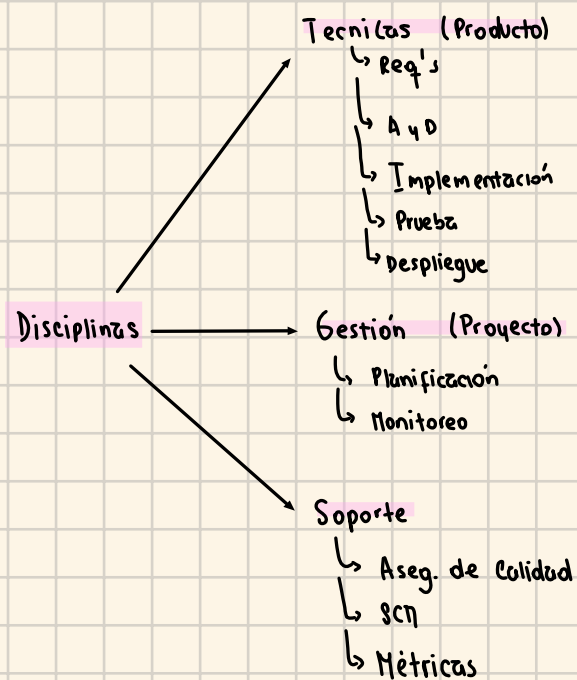 Tecnicas (Producto)
Req's
A y D
Implementación
Prueba
Despliegue
Disciplinas
Gestión (Proyecto)
Planificación
Monitoreo
Soporte
Aseg. de Calidad
SCM
Métricas